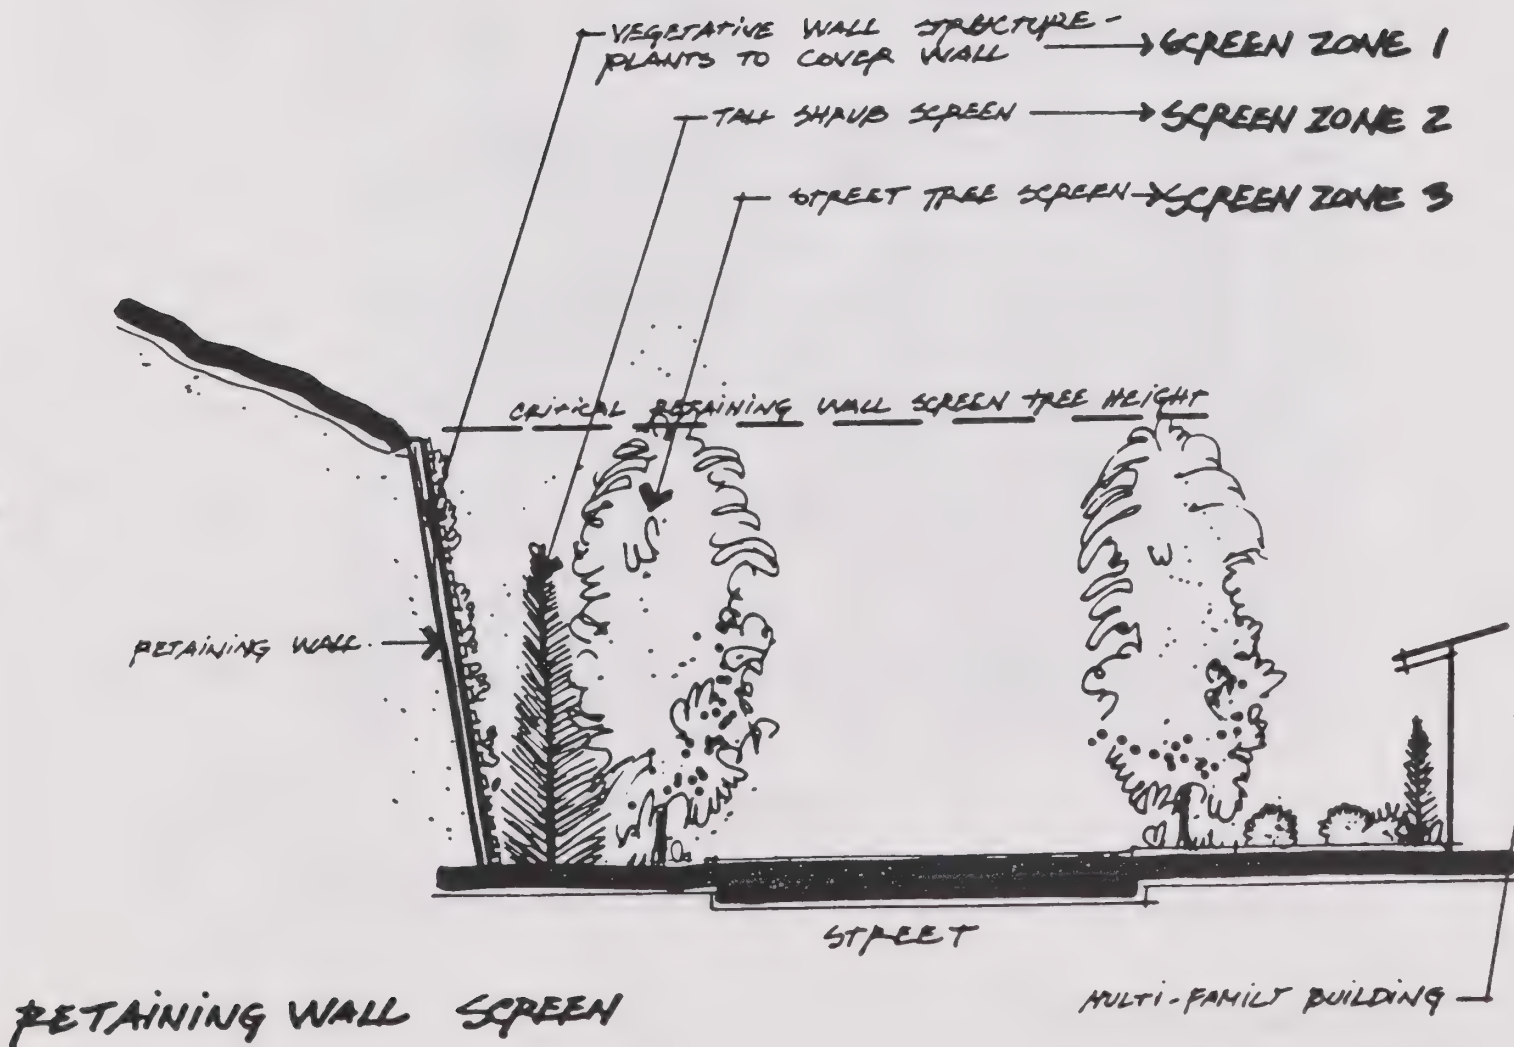 VEGETATIVE WALL STRUCTURE -
PLANTS TO COVER WALL → SCREEN ZONE 1
TALL SHRUB SCREEN → SCREEN ZONE 2
STREET TREE SCREEN → SCREEN ZONE 3
CRITICAL RETAINING WALL SCREEN TREE HEIGHT
RETAINING WALL
STREET
MULTI-FAMILY BUILDING
RETAINING WALL SCREEN